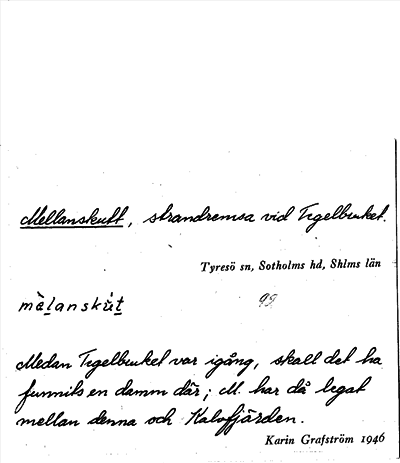 Mellanskutt, strandremsa vid Tegelbruket.
Tyresö sn, Sotholms hd, Shlms län
mèl̲anskút̲
95
Medan Tegelbruket var igång, skall det ha
funnits en damm där; M. har då legat
mellan denna och Kalvfjärden.
Karin Grafström 1946